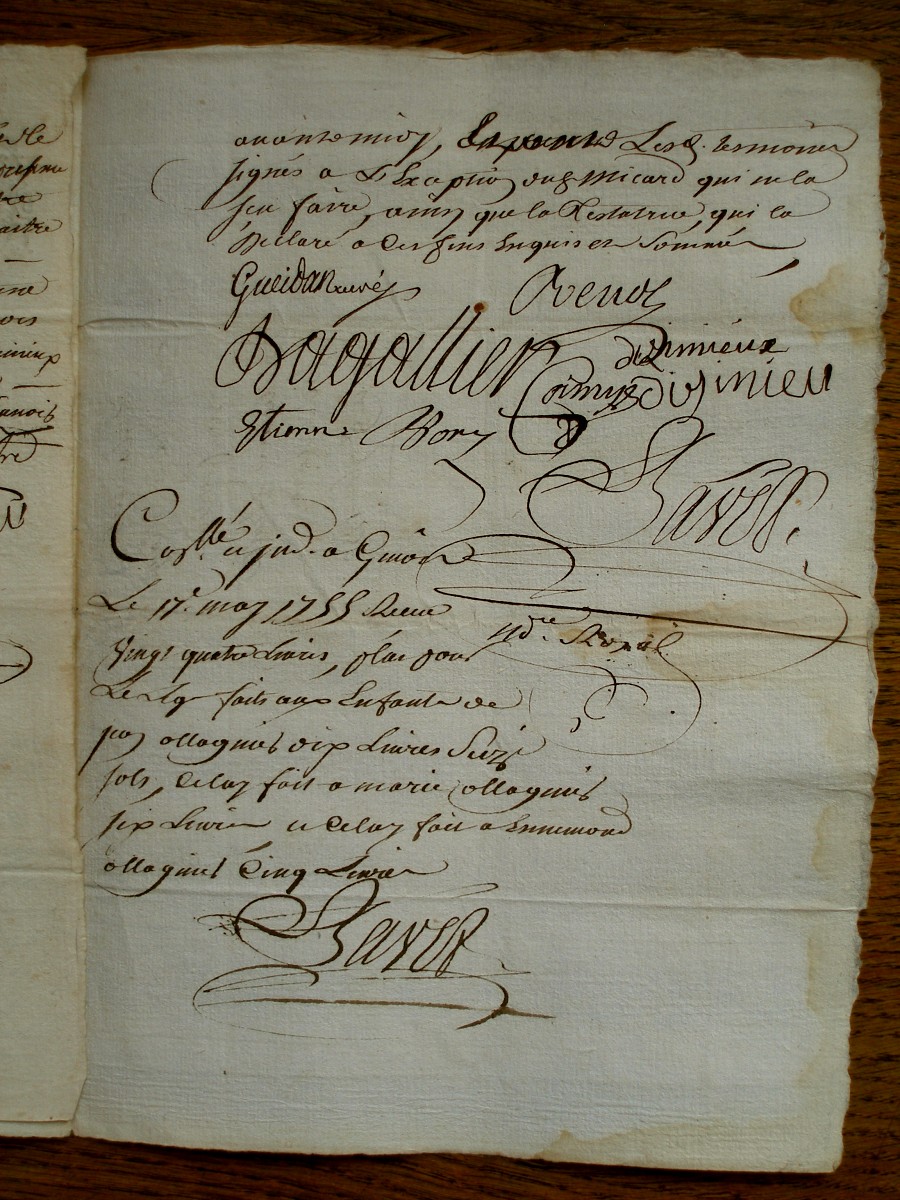 avant midy, Les d. temoins
signés a L'Exception dud Micard qui ne la
sceu faire, ainsy que la Testatrice, qui la
Declaré a Ces fins Enquis et Sommés
Gueidan curé
Ragallier
dizimieux
dizimieu
Etienne Bory
Bavéd.
Con.llé et jnd. a Gui
Le 17e. may 1755 Receu
Vingt quatre Livres, plus pour
Le Lég faits aux Enfants de
ollagnier dix Livres Seize
sols, Celuy fait a marie ollagnier
six Livres et Celuy fait a Ennemond
ollagnier Cinq Livres
Bavéd